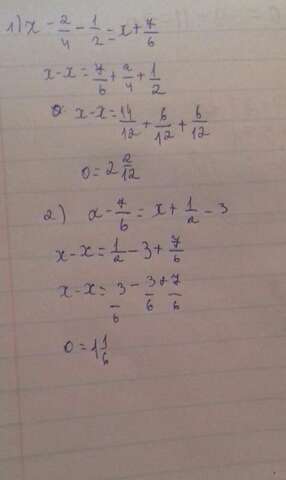 1) x - 2/4 - 1/2 = x + 7/6
x - x = 7/6 + 2/4 + 1/2
x - x = 14/12 + 6/12 + 6/12
0 = 2 2/12
2) x - 7/6 = x + 1/2 - 3
x - x = 1/2 - 3 + 7/6
x - x = 3/6 - 3/6 + 7/6
0 = 1 1/6